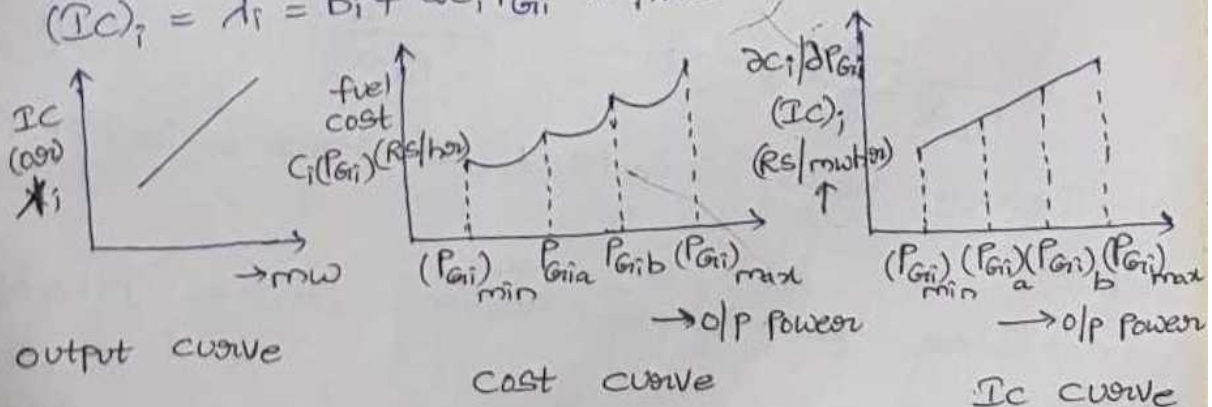 (IC)i = λi = bi + 2ci PGi
IC
(or)
λi
→ mw
output curve
fuel
cost
Ci(PGi)(Rs/hr)
(PGi)min PGia PGib (PGi)max
→ o/p power
cost curve
∂Ci/∂PGi
(IC)i
(Rs/mwHr)
↑
(PGi)min (PGi)a (PGi)b (PGi)max
→ o/p power
Ic curve